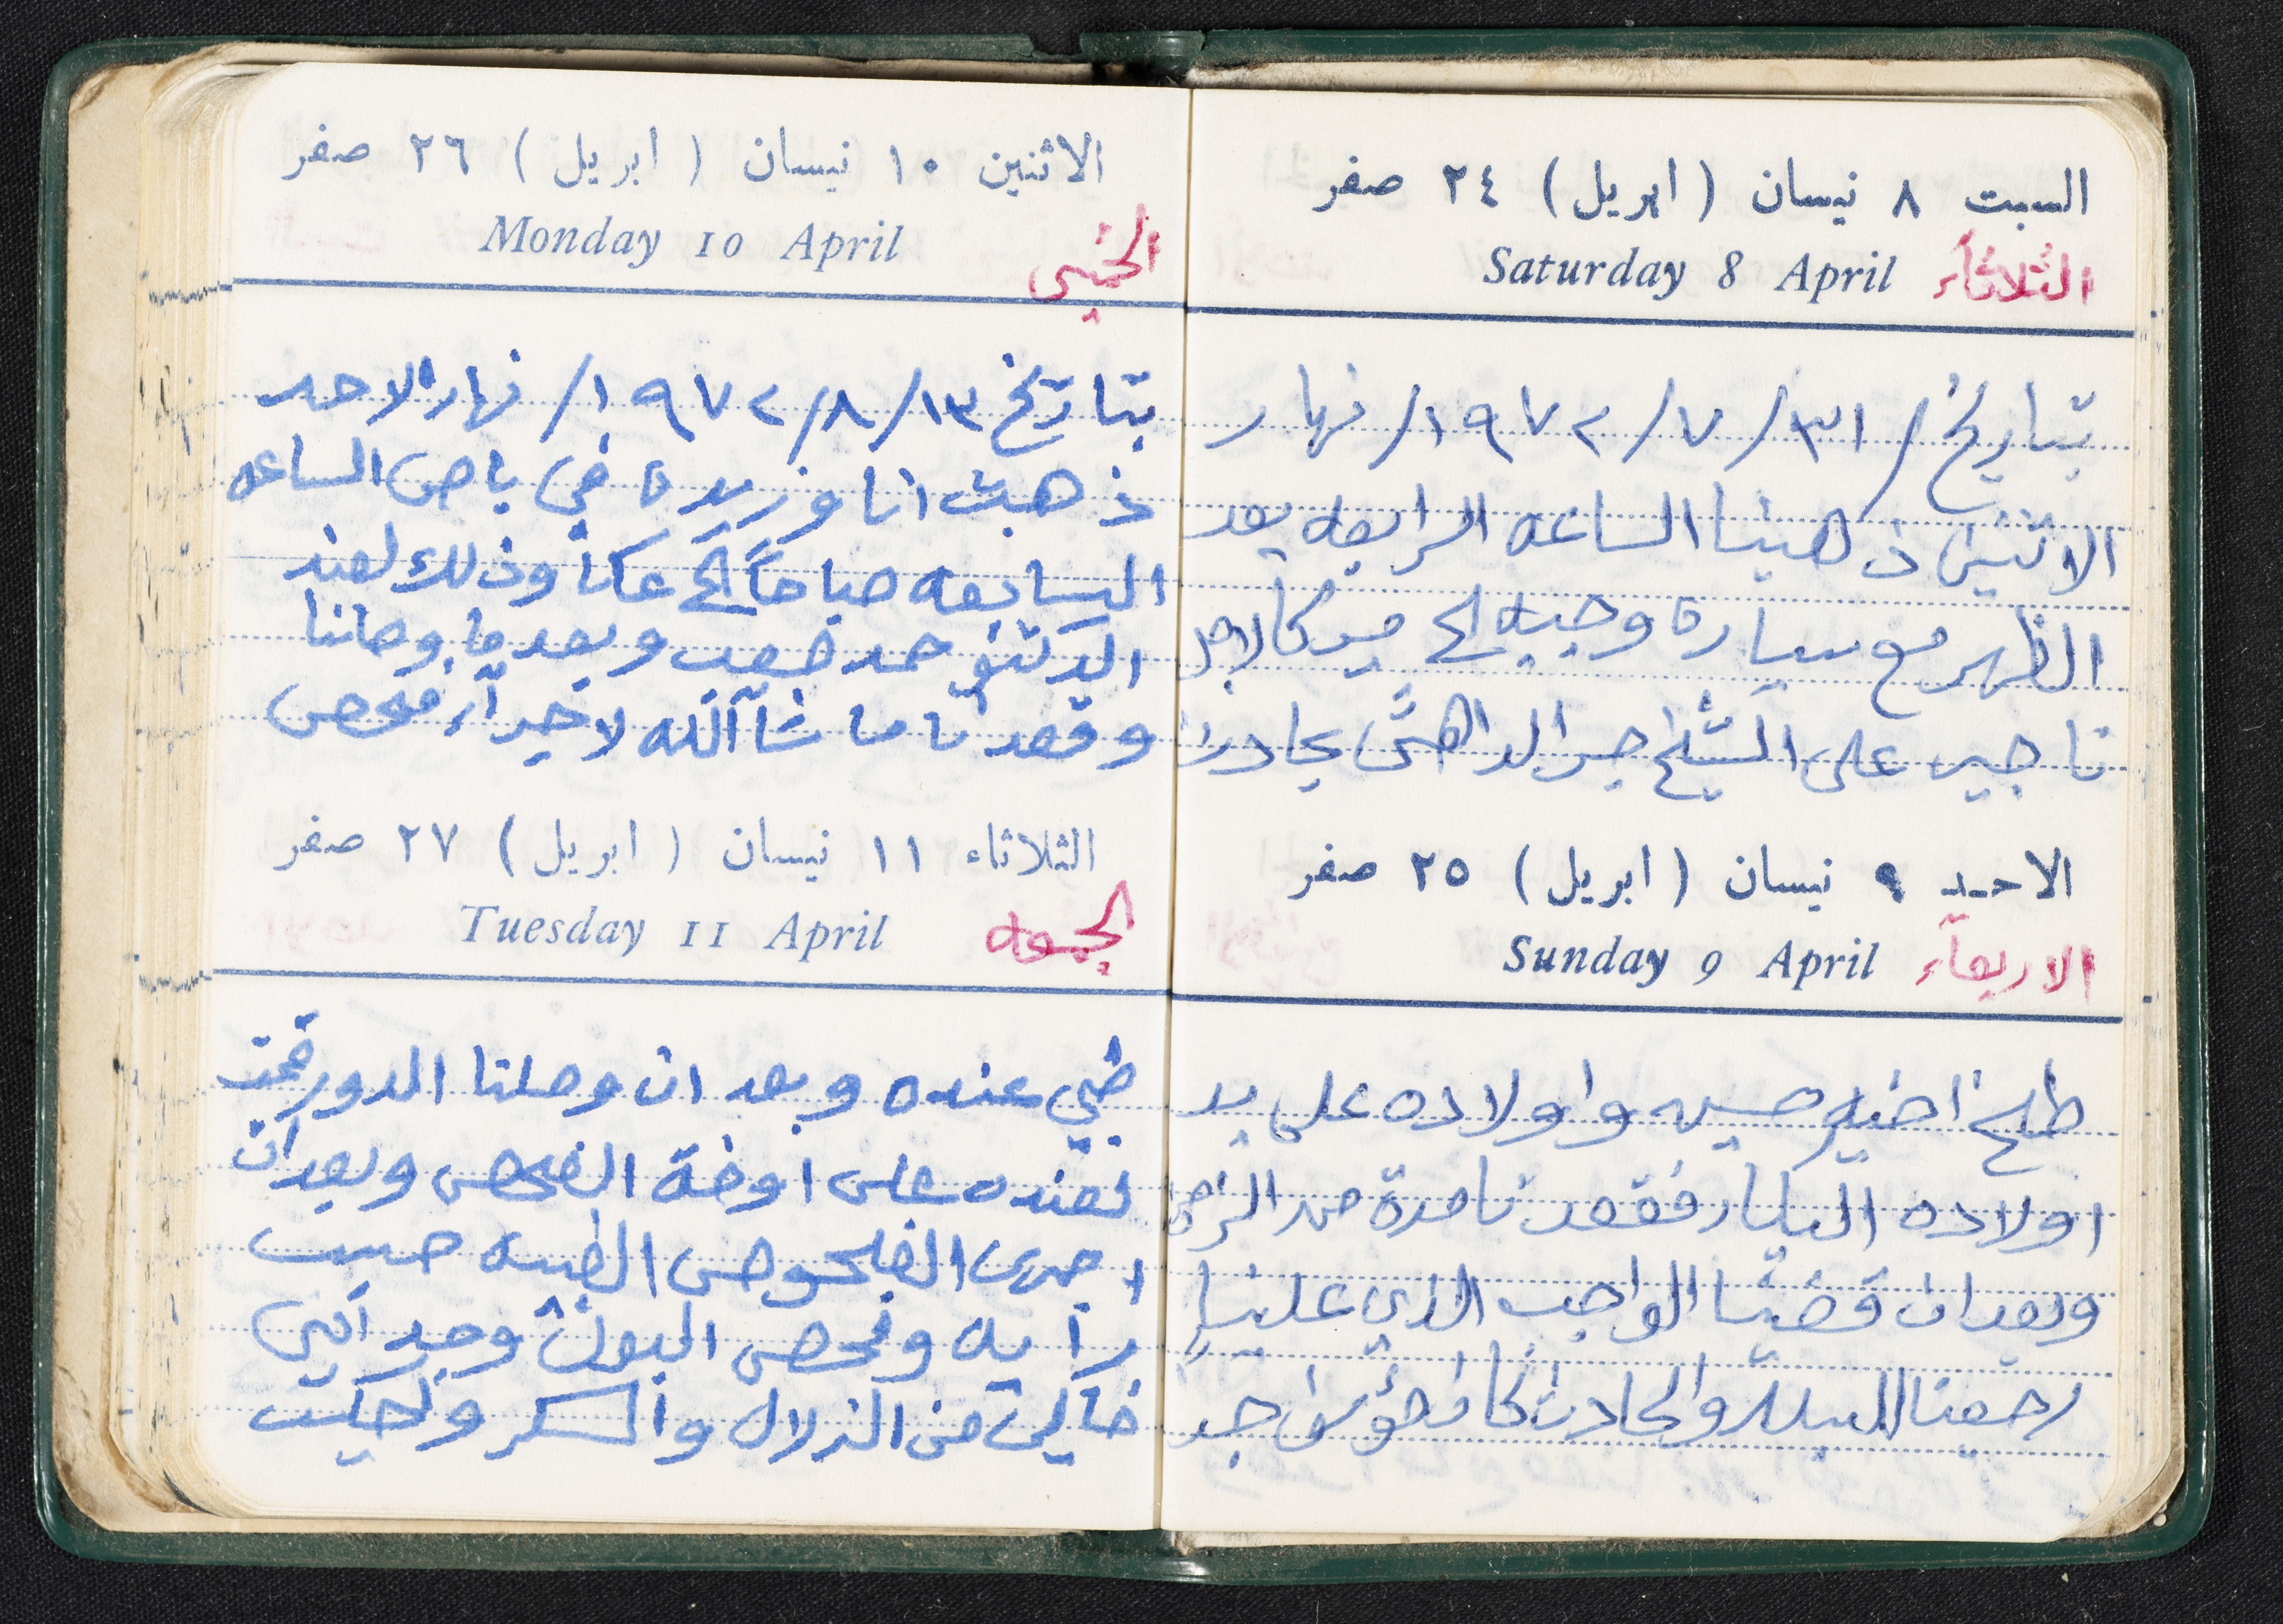 السبت ٨ نيسان ( ابريل ) ٢٤ صفر
Saturday 8 April الثلاثاء
بتاريخ / ٣١ / ٧ / ١٩٧٢ / نهار
الاثنين ذهبنا الساعه الرابعه بعد
الظهر مع سيارة وجيه الى ميركا لاجل
تاجير على الشيخ جبر الداهش بحادث
الاحد ٩ نيسان ( ابريل ) ٢٥ صفر
Sunday 9 April الاربعاء
طخ اخيه حسين واولاده على يد
اولاده الكبار فقعدنا مدة من الزمن
وبعد ان قضينا الواجب الذي علينا
رجعنا للبلد والحادث كان مؤسف جداً
الاثنين ١٠ نيسان ( ابريل ) ٢٦ صفر
Monday 10 April الخميس
بتاريخ ١٣ / ٨ / ١٩٧٢ / نهار الاحد
ذهبت انا وزيده في باص الساعه
السابعه صباحاً الى عكا وذلك لعند
الدكتور حمد صعب وبعد ما وصلنا
وقعدنا ما شآالله لاخير آر فحص
الثلاثاء ١١ نيسان ( ابريل ) ٢٧ صفر
Tuesday 11 April الجمعه
طبي عنده وبعد ان وصلنا الدور قمت
لعنده على اوضة الفحص وبعد ان
اجرى الفحوص الطبيه حسب
رآيه وفحص البول وجد آني
خآلي من الزلال والسكر وحكيت